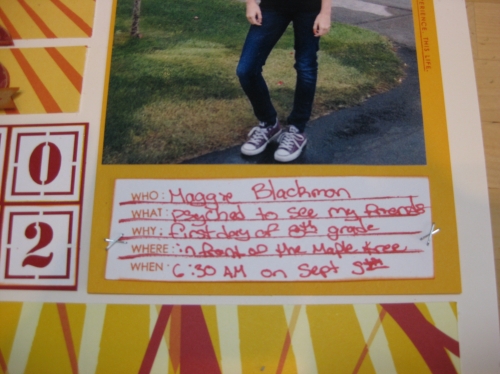 ERIENCE THIS LIFE
0
2
WHO: Maggie Blackmon
WHAT: psyched to see my friends
WHY: first day of 8th grade
WHERE: in front of the Maple tree
WHEN: 6:30 AM on Sept